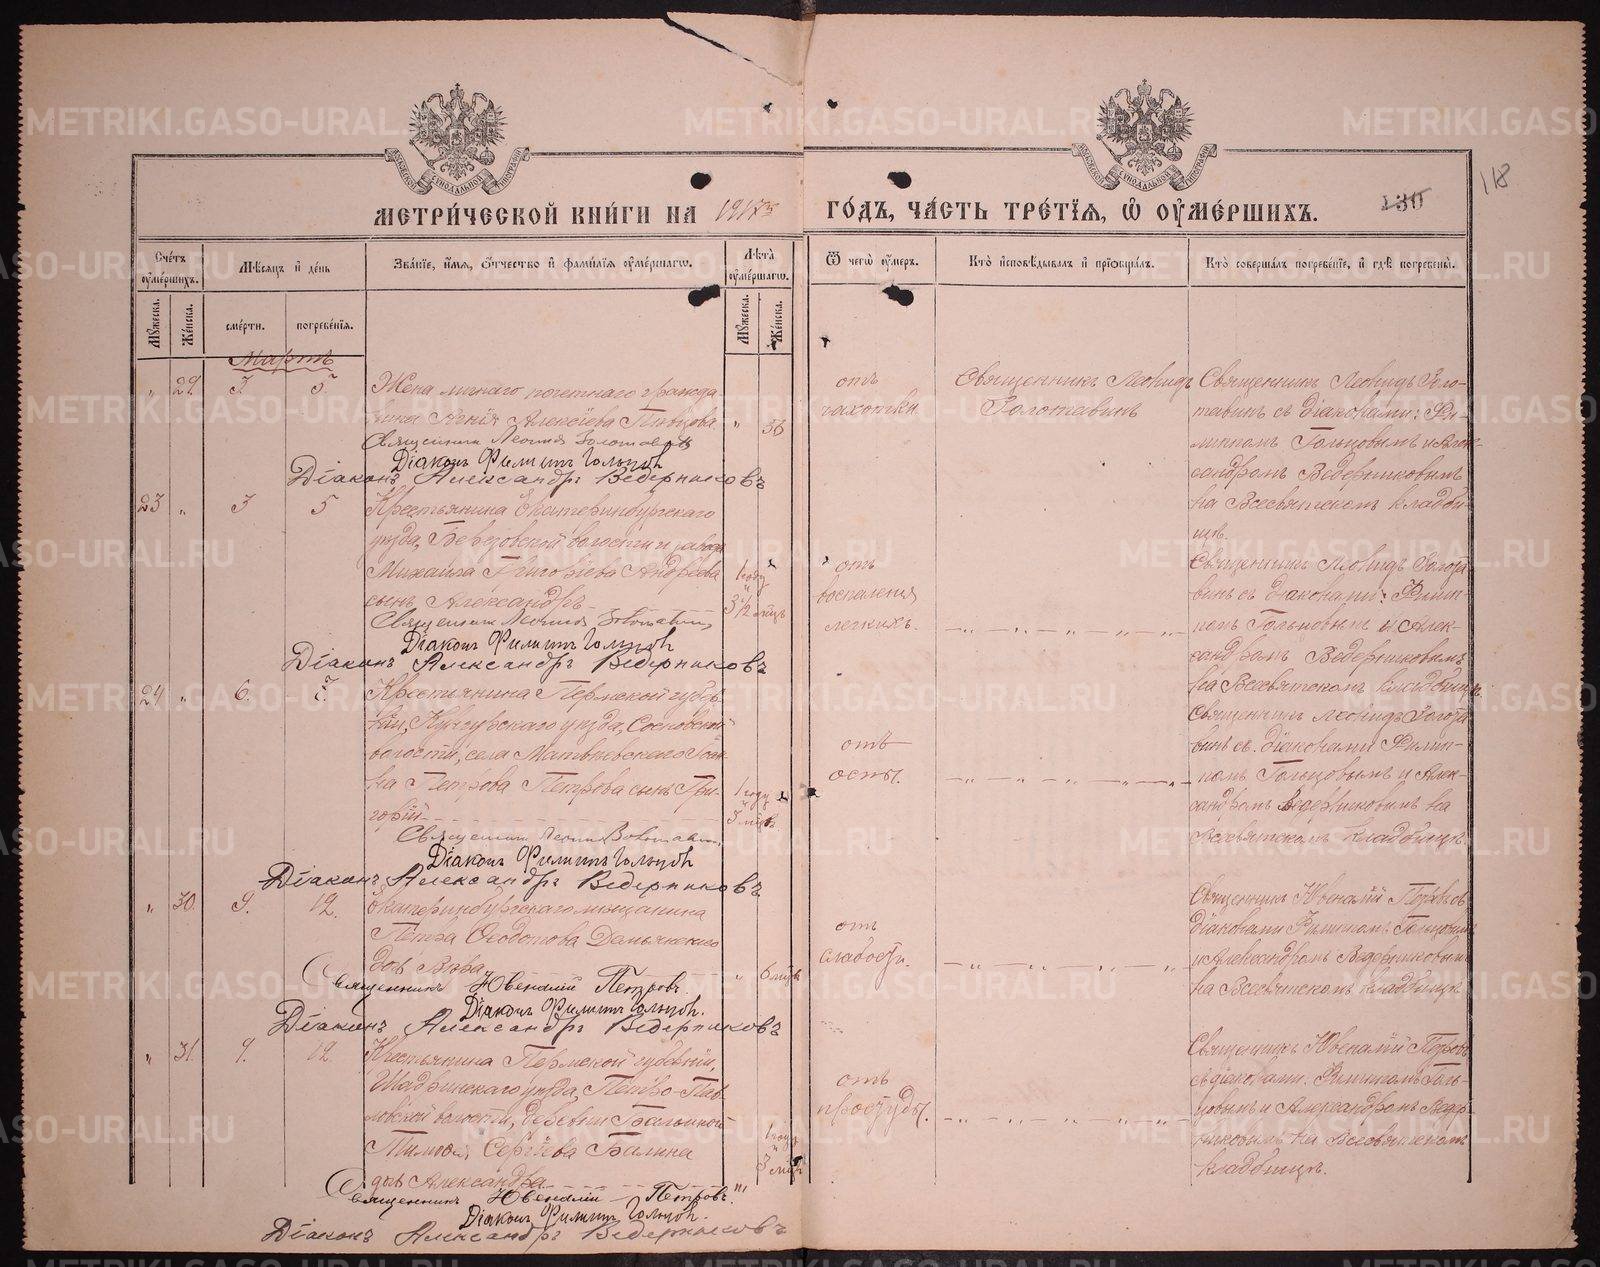 МЕТРИ́ЧЕСКОЙ КНИ́ГИ НА 1917й ГО́ДЪ, ЧА́СТЬ ТРЕ́ТЇЯ, Ѿ ОУМЕ́РШИХЪ.
130
118
Сче́тъ оумéршихъ.
Мѣсяцъ и де́нь
Зва́нїе, и́мя, о́тчество и фами́лїя оумéршагѡ.
Лѣта̀ оумéршагѡ.
Ѿ чегѡ̀ оу́меръ.
Кто̀ исповѣ́дывалъ и прїѡбща́лъ.
Кто̀ соверша́лъ погребе́нїе, и гдѣ̀ погребены̀.
Мꙋжеска.
Же́нска.
сме́рти.
погребе́нїя.
Мꙋжеска.
Же́нска.
Мартъ
„ 29. 3. 5.
Жена личнаго почетнаго гражда
нина Агнія Алексіева Пивцова „ 36
Священникъ Леонидъ Золотавинъ
Діаконъ Филиппъ Гольцовъ
Діаконъ Александръ Ведерниковъ
отъ
чахотки
Священникъ Леонидъ
Золотавинъ
Священникъ Леонидъ Золо-
тавинъ съ діаконами: Фи-
липпомъ Гольцовымъ и Алек-
сандромъ Ведерниковымъ
на Всесвятскомъ кладби-
щѣ.
23 „ 3 5
Крестьянина Екатеринбургскаго
уѣзда, Березовской волости и завода
Михаила Григоріева Андреева
сынъ Александръ
1 году
3 1/2 мѣц
Священникъ Леонидъ Золотавинъ
Діаконъ Филиппъ Гольцовъ
Діаконъ Александръ Ведерниковъ
отъ
воспаленія
легкихъ.
Священникъ Леонидъ Золота
винъ съ діаконами: Филип-
помъ Гольцовымъ и Алек-
сандромъ Ведерниковымъ
на Всесвятскомъ кладбищѣ.
24 „ 6. 7.
Крестьянина Пермской губер-
ніи, Кунгурскаго уѣзда, Сосновской
волости, села Матвѣевскаго
на Петрова Петрова сынъ Гри-
горій
1 году
5 мѣц
Священникъ Леонидъ Золотавинъ
Діаконъ Филиппъ Гольцовъ
Діаконъ Александръ Ведерниковъ
отъ
оспы.
Священникъ Леонидъ Золота
винъ съ діаконами Филип-
помъ Гольцовымъ и Алек-
сандромъ Ведерниковымъ на
Всесвятскомъ кладбищѣ.
„ 30. 9. 12.
Екатеринбургскаго мѣщанина
Петра Ѳеодотова Демьянскаго
дочь Вѣра „ 6 мѣцъ
Священникъ Ювеналій Петровъ
Діаконъ Филиппъ Гольцовъ.
Діаконъ Александръ Ведерниковъ
отъ
слабости.
Священникъ Ювеналій Петровъ съ
діаконами Филиппомъ Гольцовымъ
и Александромъ Ведерниковымъ
на Всесвятскомъ кладбищѣ
„ 31. 9. 12.
Крестьянина Пермской губерніи,
Шадринскаго уѣзда, Петро-Пав-
ловской волости, деревни Бальиной
Тимофея Сергіева Балина
дочь Александра
1 году
3 мѣц
Священникъ Ювеналій Петровъ.
Діаконъ Филиппъ Гольцовъ.
Діаконъ Александръ Ведерниковъ
отъ
простуды.
Священникъ Ювеналій Петровъ
съ діаконами: Филиппомъ Голь-
цовымъ и Александромъ Ведер-
никовымъ на Всесвятскомъ
кладбищѣ.
METRIKI.GASO-URAL.RU